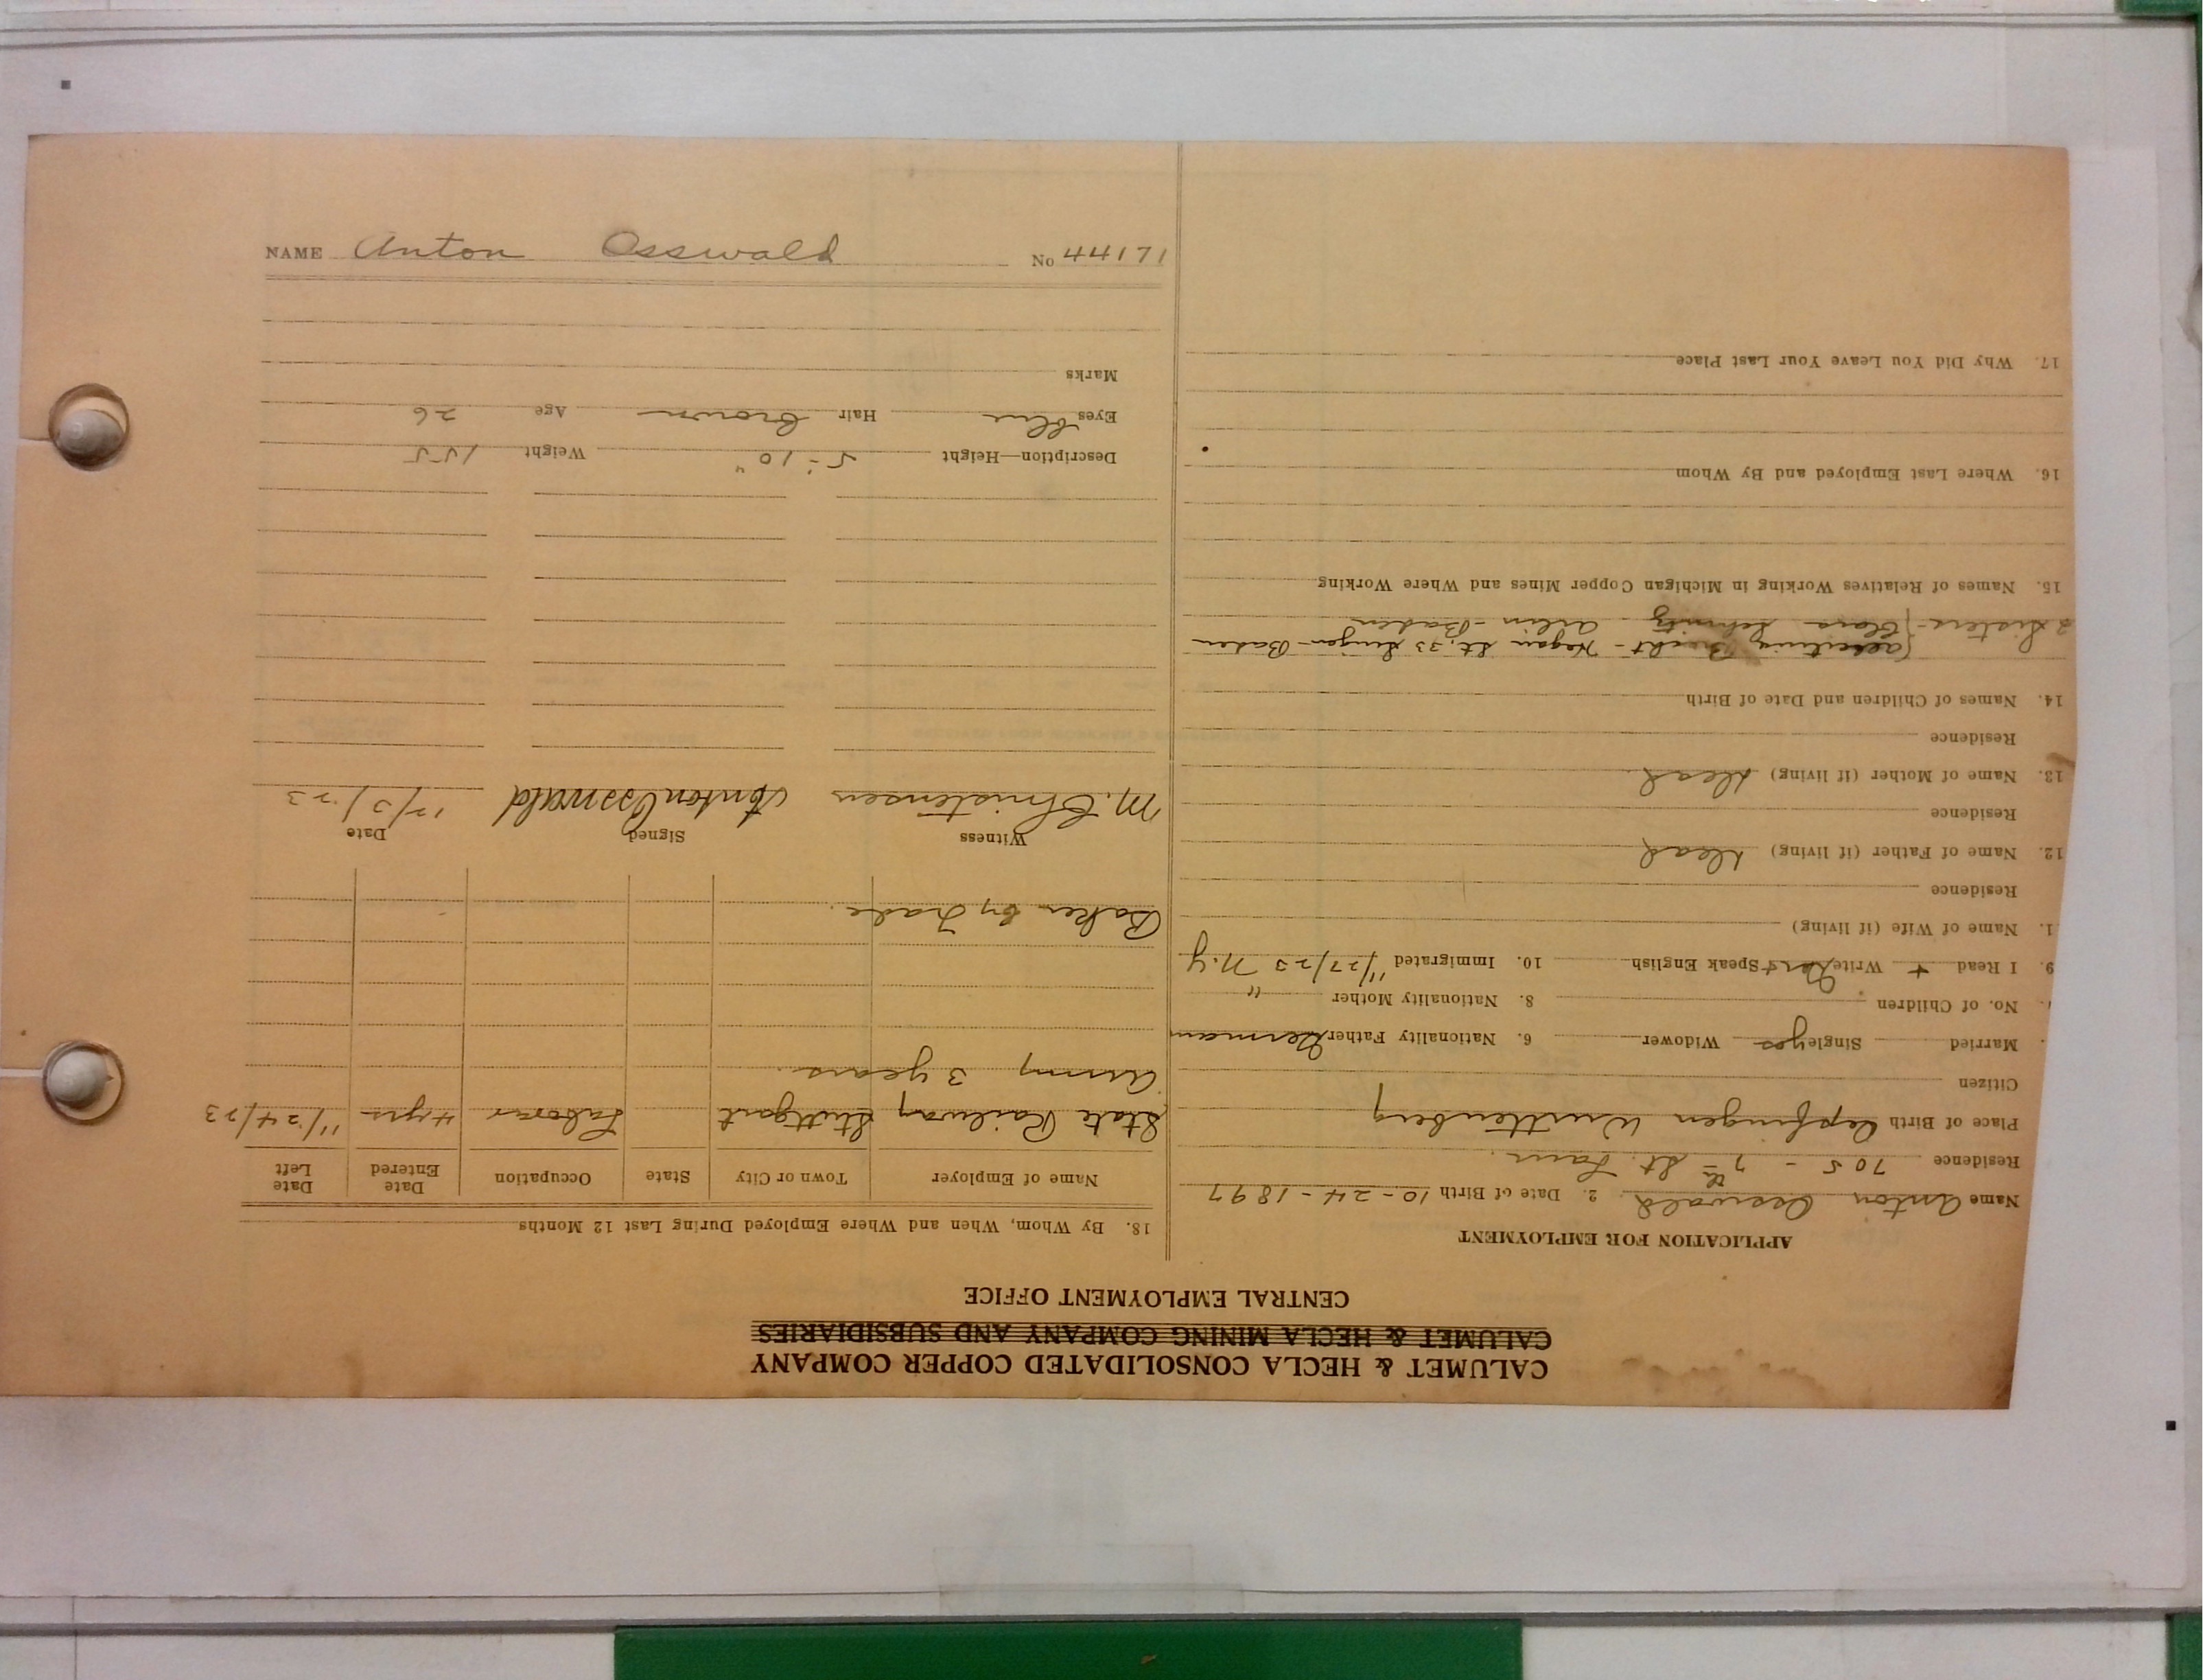 CALUMET & HECLA CONSOLIDATED COPPER COMPANY
CALUMET & HECLA MINING COMPANY AND SUBSIDIARIES
CENTRAL EMPLOYMENT OFFICE
APPLICATION FOR EMPLOYMENT
Name Anton Osswald 2. Date of Birth 10-24-1897
Residence 705 - 7th St. Laur.
Place of Birth Wurttemberg
Citizen
Married Single yes Widower 6. Nationality Father German
No. of Children 8. Nationality Mother "
9. I Read + Write Speak English 10. Immigrated 11/27/23 N.Y
1. Name of Wife (if living)
Residence
12. Name of Father (if living) Dead
Residence
13. Name of Mother (if living) Dead
Residence
14. Names of Children and Date of Birth
St. 33 Singen - Baden
2 Sisters - Clara Schmitz - Baden
15. Names of Relatives Working in Michigan Copper Mines and Where Working
16. Where Last Employed and By Whom
17. Why Did You Leave Your Last Place
18. By Whom, When and Where Employed During Last 12 Months
Name of Employer Town or City State Occupation Date Entered Date Left
State Railway Stuttgart Laborer 4 yrs 11/24/23
Army 3 years.
Baker by Trade.
Witness Signed Date
M. Christensen Anton Osswald 12/3/23
Description—Height 5'-10" Weight 155
Eyes blue Hair Brown Age 26
Marks
NAME Anton Osswald No 44171